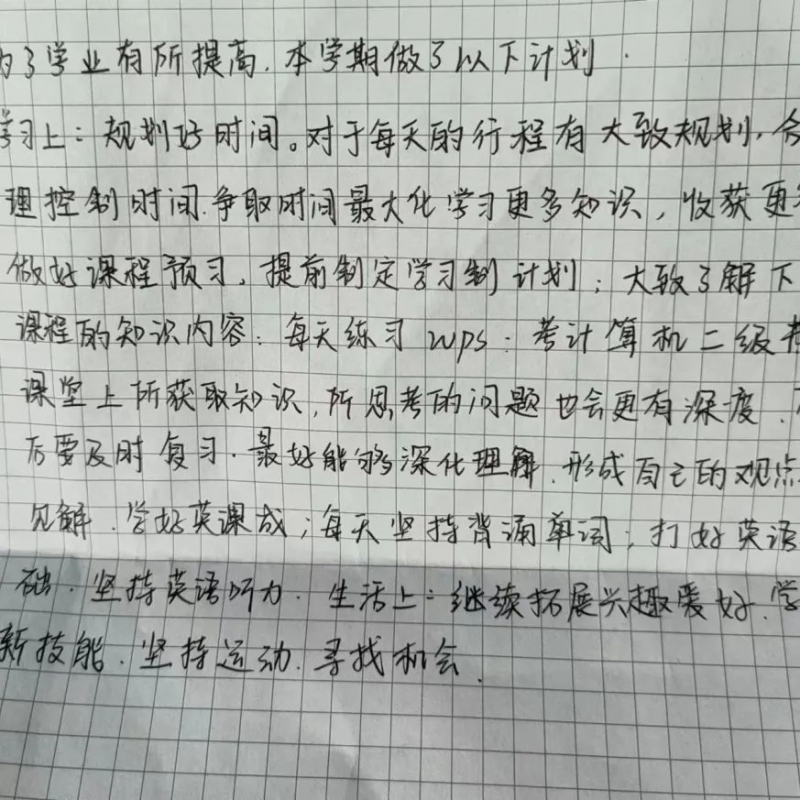 为了学业有所提高.本学期做了以下计划.
学习上:规划好时间。对于每天的行程有大致规划.合
理控制时间.争取时间最大化学习更多知识,收获更多
做好课程预习。提前制定学习制计划;大致了解下
课程的知识内容:每天练习wps:考计算机二级
课堂上所获取知识.所思考的问题也会更有深度.
后要及时复习.最好能够深化理解.形成自己的观点
见解.学好英课成;每天坚持背诵单词;打好英语
础.坚持英语听力.生活上:继续拓展兴趣爱好.学
新技能.坚持运动.寻找机会.